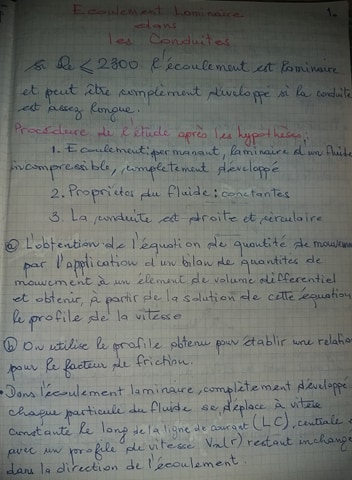 Ecoulement Laminaire
dans
les Conduites
1.
si Re ⩽ 2300 l'écoulement est laminaire
et peut être complèment développé si la conduite
est assez longue.
Procédure de l'étude après les hypothèses.
1. Ecoulement: permanant, laminaire d'un fluide
incompressible, complètement développé
2. Propriétés du fluide: constantes
3. La conduite est droite et circulaire
a) L'obtention de l'équation de quantité de mouvem
par l'application d'un bilan de quantités de
mouvement à un élément de volume différentiel
et obtenir, à partir de la solution de cette équation
le profile de la vitesse
b) On utilise le profile obtenu pour établir une relation
pour le facteur de friction.
• Dans l'écoulement laminaire, complètement développé
chaque particule du fluide se déplace à vitesse
constante le long de la ligne de courant (LC), centrale
avec un porofile de vitesse (r) restant inchangé
dans la direction de l'écoulement.